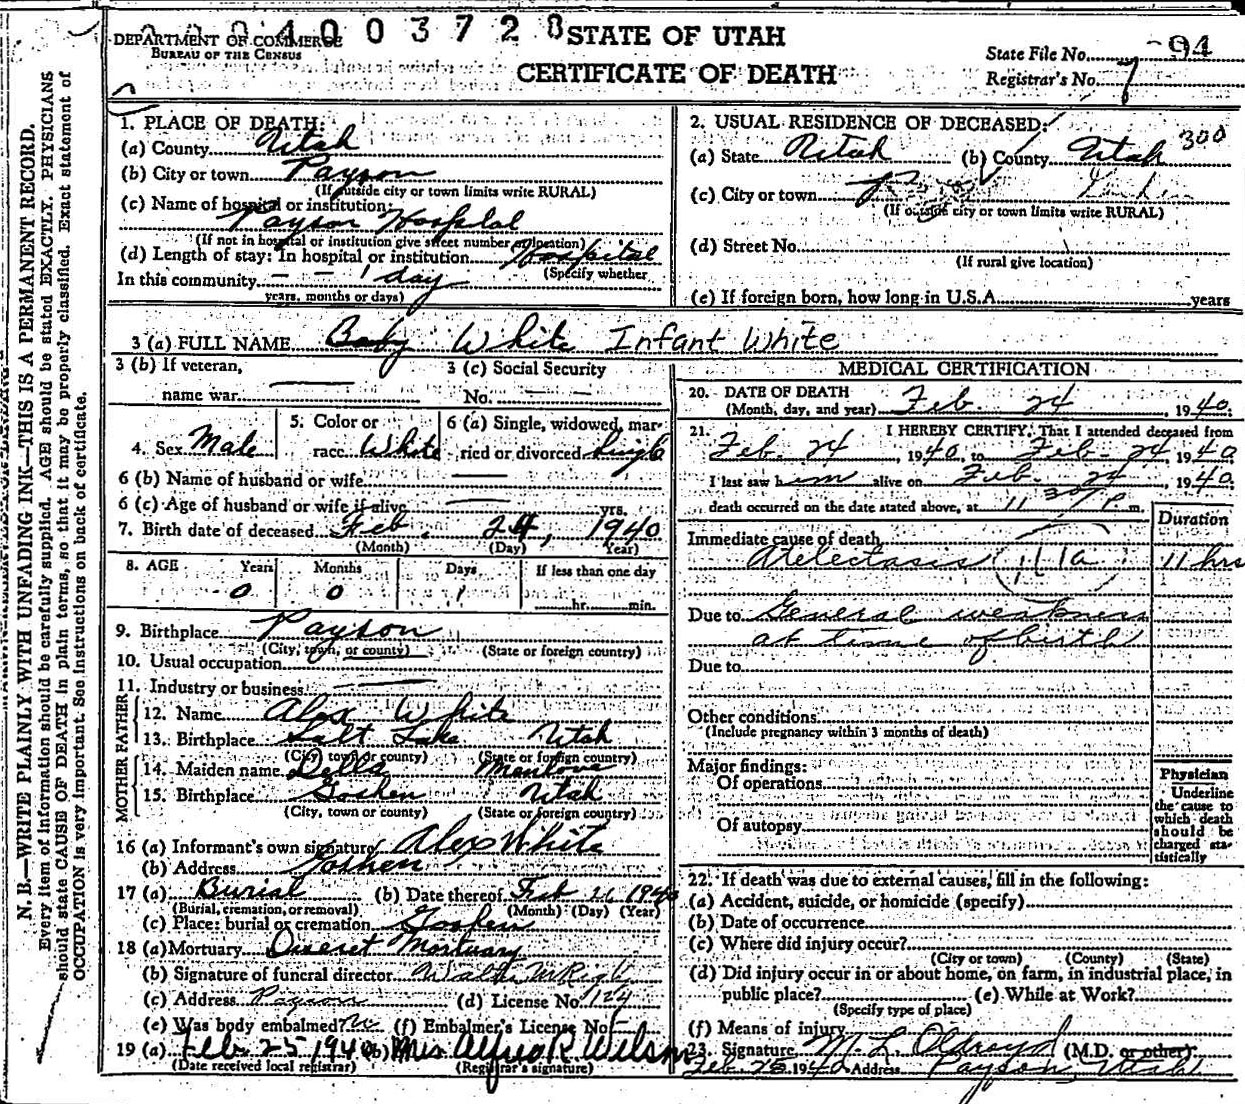 0004003728
DEPARTMENT OF COMMERCE
BUREAU OF THE CENSUS
STATE OF UTAH
CERTIFICATE OF DEATH
State File No. 94
Registrar's No. 7
N. B.—WRITE PLAINLY WITH UNFADING INK—THIS IS A PERMANENT RECORD.
Every item of information should be carefully supplied. AGE should be stated EXACTLY. PHYSICIANS
should state CAUSE OF DEATH in plain terms, so that it may be properly classified. Exact statement of
OCCUPATION is very important. See instructions on back of certificate.
1. PLACE OF DEATH:
(a) County Utah
(b) City or town Payson
(If outside city or town limits write RURAL)
(c) Name of hospital or institution:
Payson Hospital
(If not in hospital or institution give street number or location)
(d) Length of stay: In hospital or institution Hospital
(Specify whether
In this community – – 1 day
years, months or days)
2. USUAL RESIDENCE OF DECEASED: 300
(a) State Utah (b) County Utah
(c) City or town
(If outside city or town limits write RURAL)
(d) Street No.
(If rural give location)
(e) If foreign born, how long in U.S.A. years
3 (a) FULL NAME Baby White Infant White
3 (b) If veteran,
name war
3 (c) Social Security
No.
4. Sex Male
5. Color or
race White
6 (a) Single, widowed, mar-
ried or divorced Single
6 (b) Name of husband or wife
6 (c) Age of husband or wife if alive yrs.
7. Birth date of deceased Feb. 24, 1940
(Month) (Day) (Year)
8. AGE Years Months Days If less than one day
0 0 1 hr. min.
9. Birthplace Payson
(City, town, or county) (State or foreign country)
10. Usual occupation
11. Industry or business
FATHER
12. Name Alex White
13. Birthplace Salt Lake Utah
(City, town or county) (State or foreign country)
MOTHER
14. Maiden name Della Manlove
15. Birthplace Goshen Utah
(City, town or county) (State or foreign country)
16 (a) Informant's own signature Alex White
(b) Address Goshen
17 (a) Burial (b) Date thereof Feb 26 1940
(Burial, cremation, or removal) (Month) (Day) (Year)
(c) Place: burial or cremation Goshen
18 (a) Mortuary Deseret Mortuary
(b) Signature of funeral director
(c) Address Payson (d) License No. 124
(e) Was body embalmed? No (f) Embalmer's License No.
19 (a) Feb 25 1940 (b) Mrs R. Wilson
(Date received local registrar) (Registrar's signature)
MEDICAL CERTIFICATION
20. DATE OF DEATH
(Month, day, and year) Feb. 24, 1940.
21. I HEREBY CERTIFY, That I attended deceased from
Feb. 24, 1940, to Feb. 24, 1940
I last saw him alive on Feb. 24, 1940.
death occurred on the date stated above, at 11 30 P. m.
Duration
Immediate cause of death
Atelectasis 11 hrs
Due to General weakness
at time of birth
Due to
Other conditions
(Include pregnancy within 3 months of death)
Major findings:
Of operations
Of autopsy
Physician
Underline
the cause to
which death
should be
charged sta-
tistically
22. If death was due to external causes, fill in the following:
(a) Accident, suicide, or homicide (specify)
(b) Date of occurrence
(c) Where did injury occur?
(City or town) (County) (State)
(d) Did injury occur in or about home, on farm, in industrial place, in
public place? (e) While at Work?
(Specify type of place)
(f) Means of injury
23. Signature M. L. Oldroyd (M.D. or other)
Feb 25, 1940 Address Payson, Utah